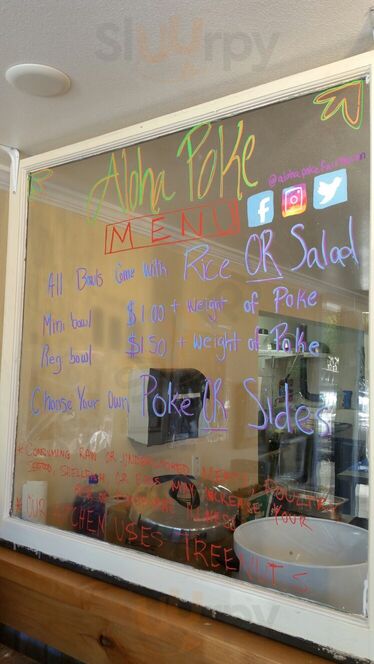 Slurpy
Aloha Poke
MENU
All Bowls Come With Rice OR Salad
Mini bowl $1.00 + weight of Poke
Reg. bowl $1.50 + weight of Poke
Choose Your Own Poke OR Sides
* CONSUMING RAW OR UNDERCOOKED MEATS, POULTRY,
SEAFOOD, SHELLFISH OR EGGS MAY INCREASE YOUR
RISK OF FOODBORNE ILLNESS
* OUR KITCHEN USES TREENUTS